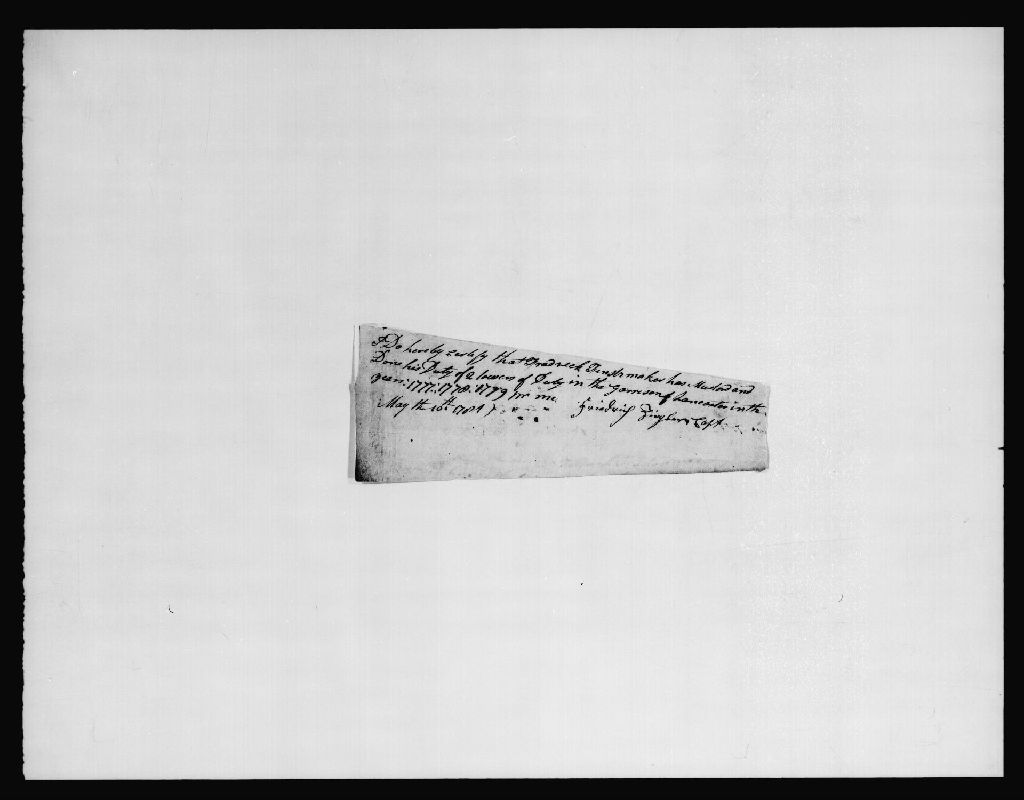 I Do hereby certify that Fradreck Finstermaker has Musterd and
Done his Duty of 2 towers of Duty in the Garreson of Lancaster in the
years. 1777. 1778. 1779 pr me.
May th 10th 1784 Friedrich Ziegler Capt